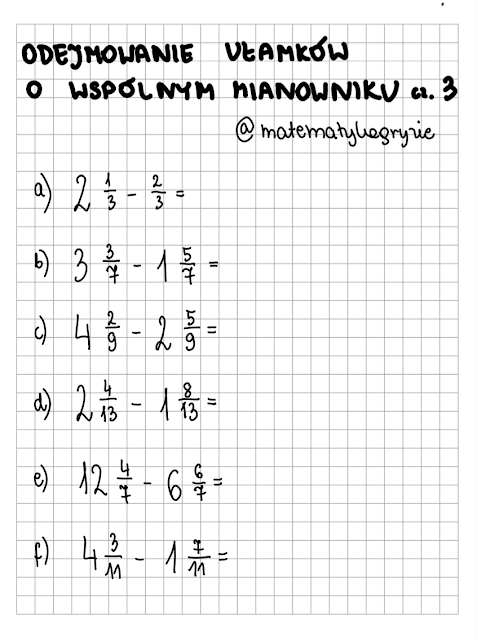 ODEJMOWANIE UŁAMKÓW
O WSPÓLNYM MIANOWNIKU cz. 3
@matematylegryzie
a) 2 1/3 - 2/3 =
b) 3 3/7 - 1 5/7 =
c) 4 2/9 - 2 5/9 =
d) 2 4/13 - 1 8/13 =
e) 12 4/7 - 6 6/7 =
f) 4 3/11 - 1 7/11 =